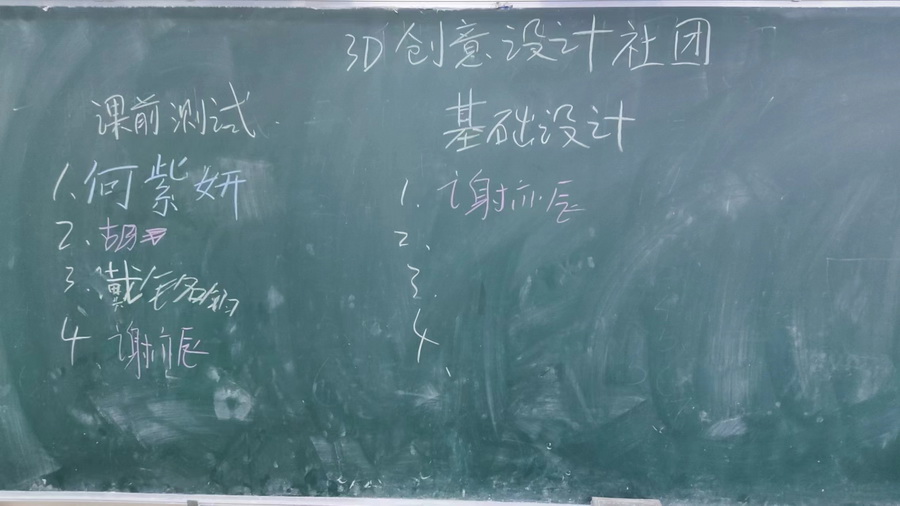 3D创意设计社团
课前测试
1.何紫妍
2.胡
3.戴
4.谢亦辰
基础设计
1.谢亦辰
2.
3.
4